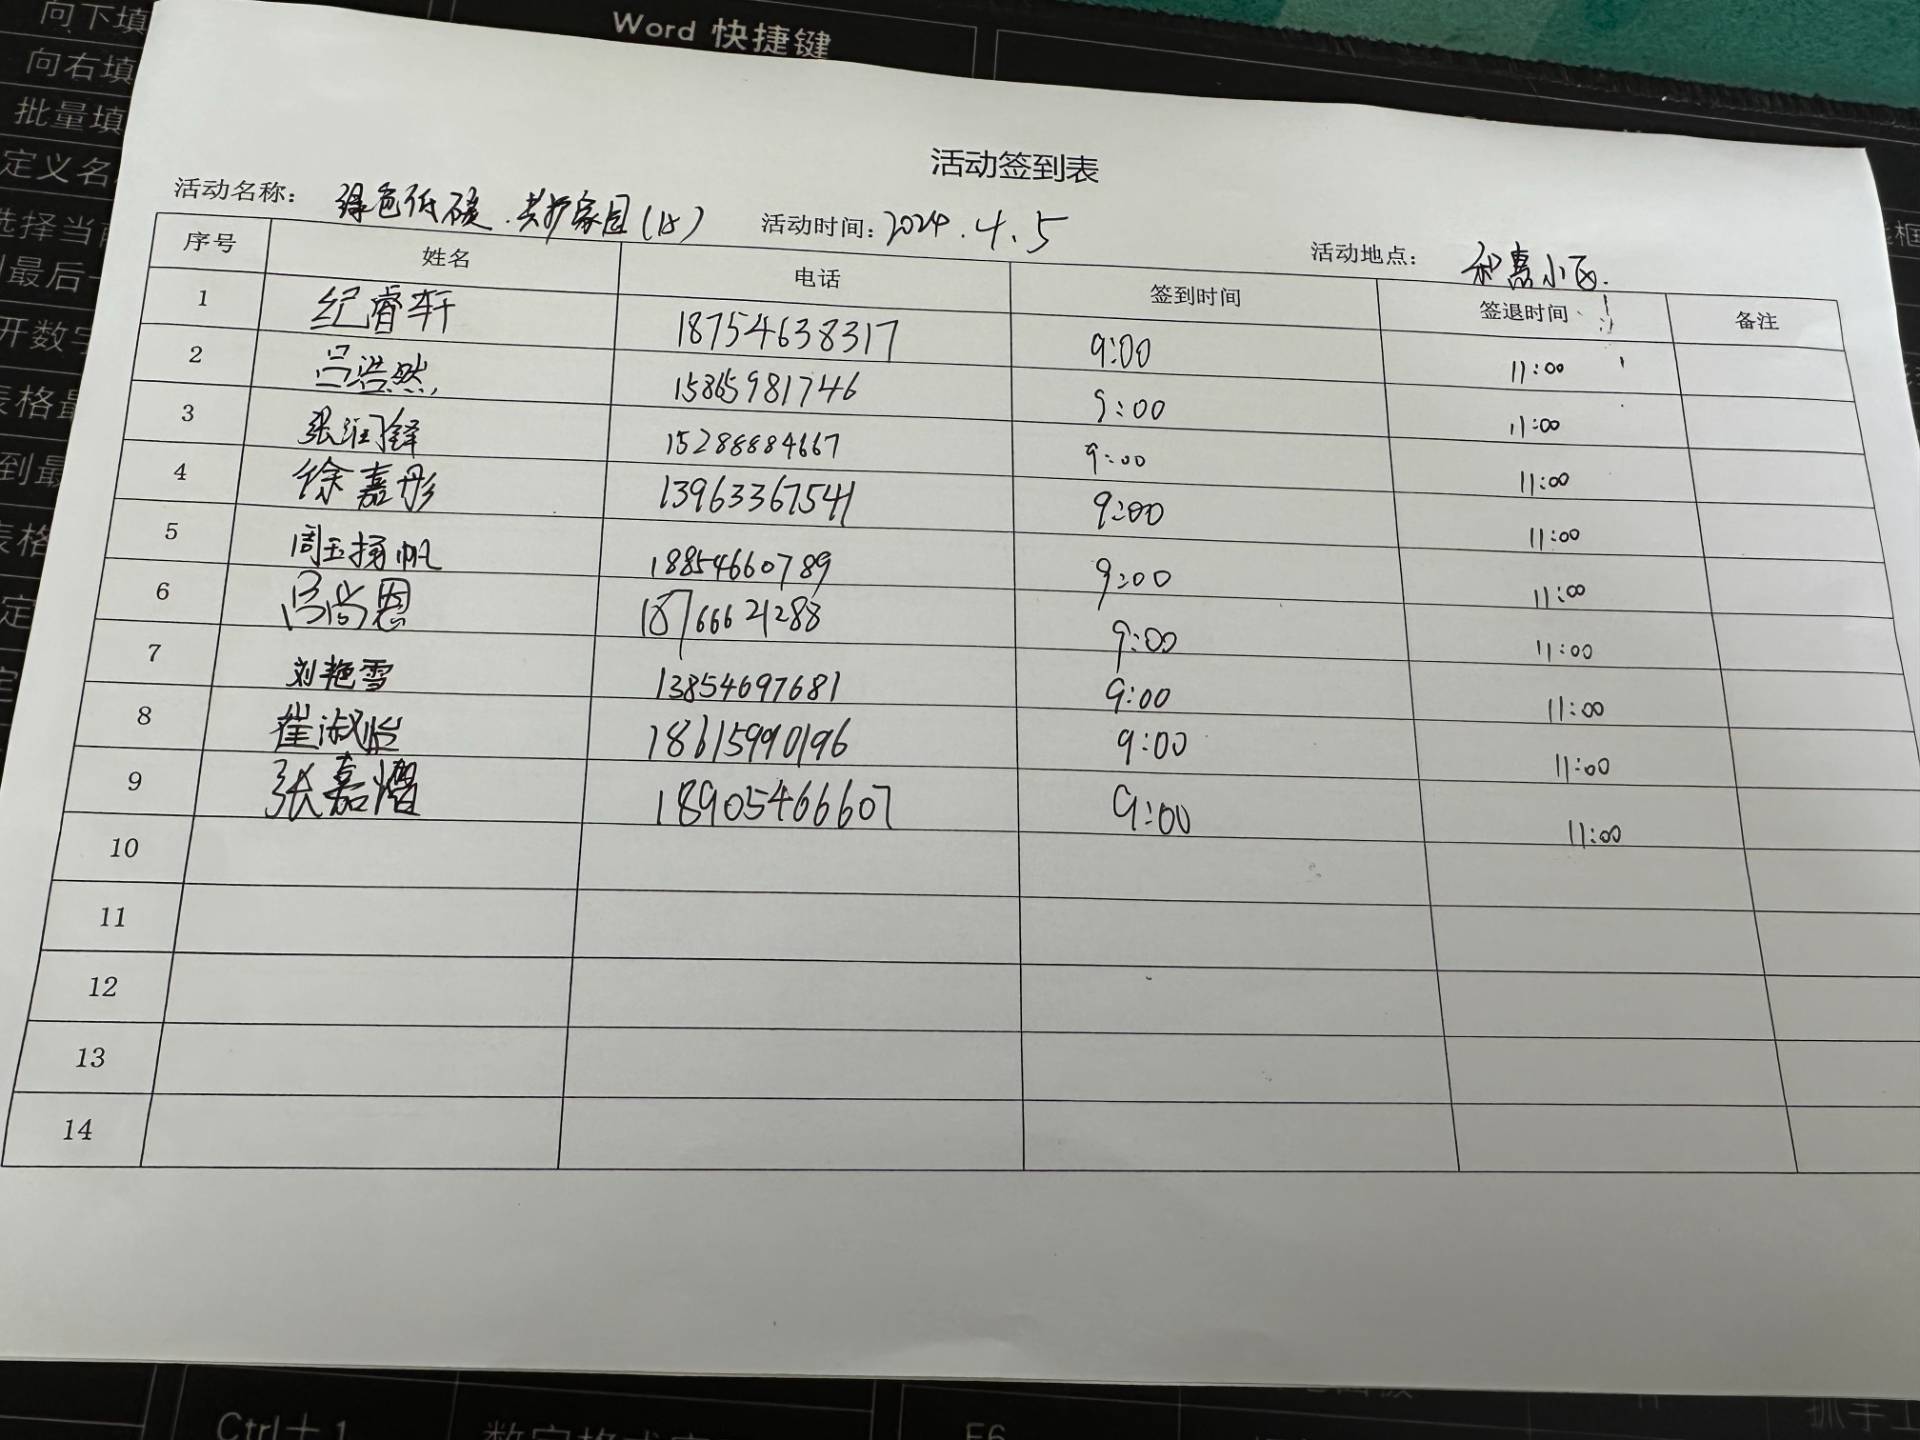 向下填
Word 快捷键
向右填
批量填
定义名
选择当前
到最后一
开数字
表格最
到最
表格
定
活动签到表
活动名称: 绿色低碳.共护家园(1次) 活动时间: 2024.4.5 活动地点: 和嘉小区.
序号 姓名 电话 签到时间 签退时间 备注
1 纪睿轩 18754638317 9:00 11:00
2 吕浩然 15865981746 9:00 11:00
3 张润铎 15288884667 9:00 11:00
4 徐嘉彤 13963367541 9:00 11:00
5 周玉扬帆 18854660789 9:00 11:00
6 吕尚恩 18766621288 9:00 11:00
7 刘艳雪 13854697681 9:00 11:00
8 崔淑怡 18615990196 9:00 11:00
9 张嘉熠 18905466607 9:00 11:00
10
11
12
13
14
Ctrl+1
F6
抓手工